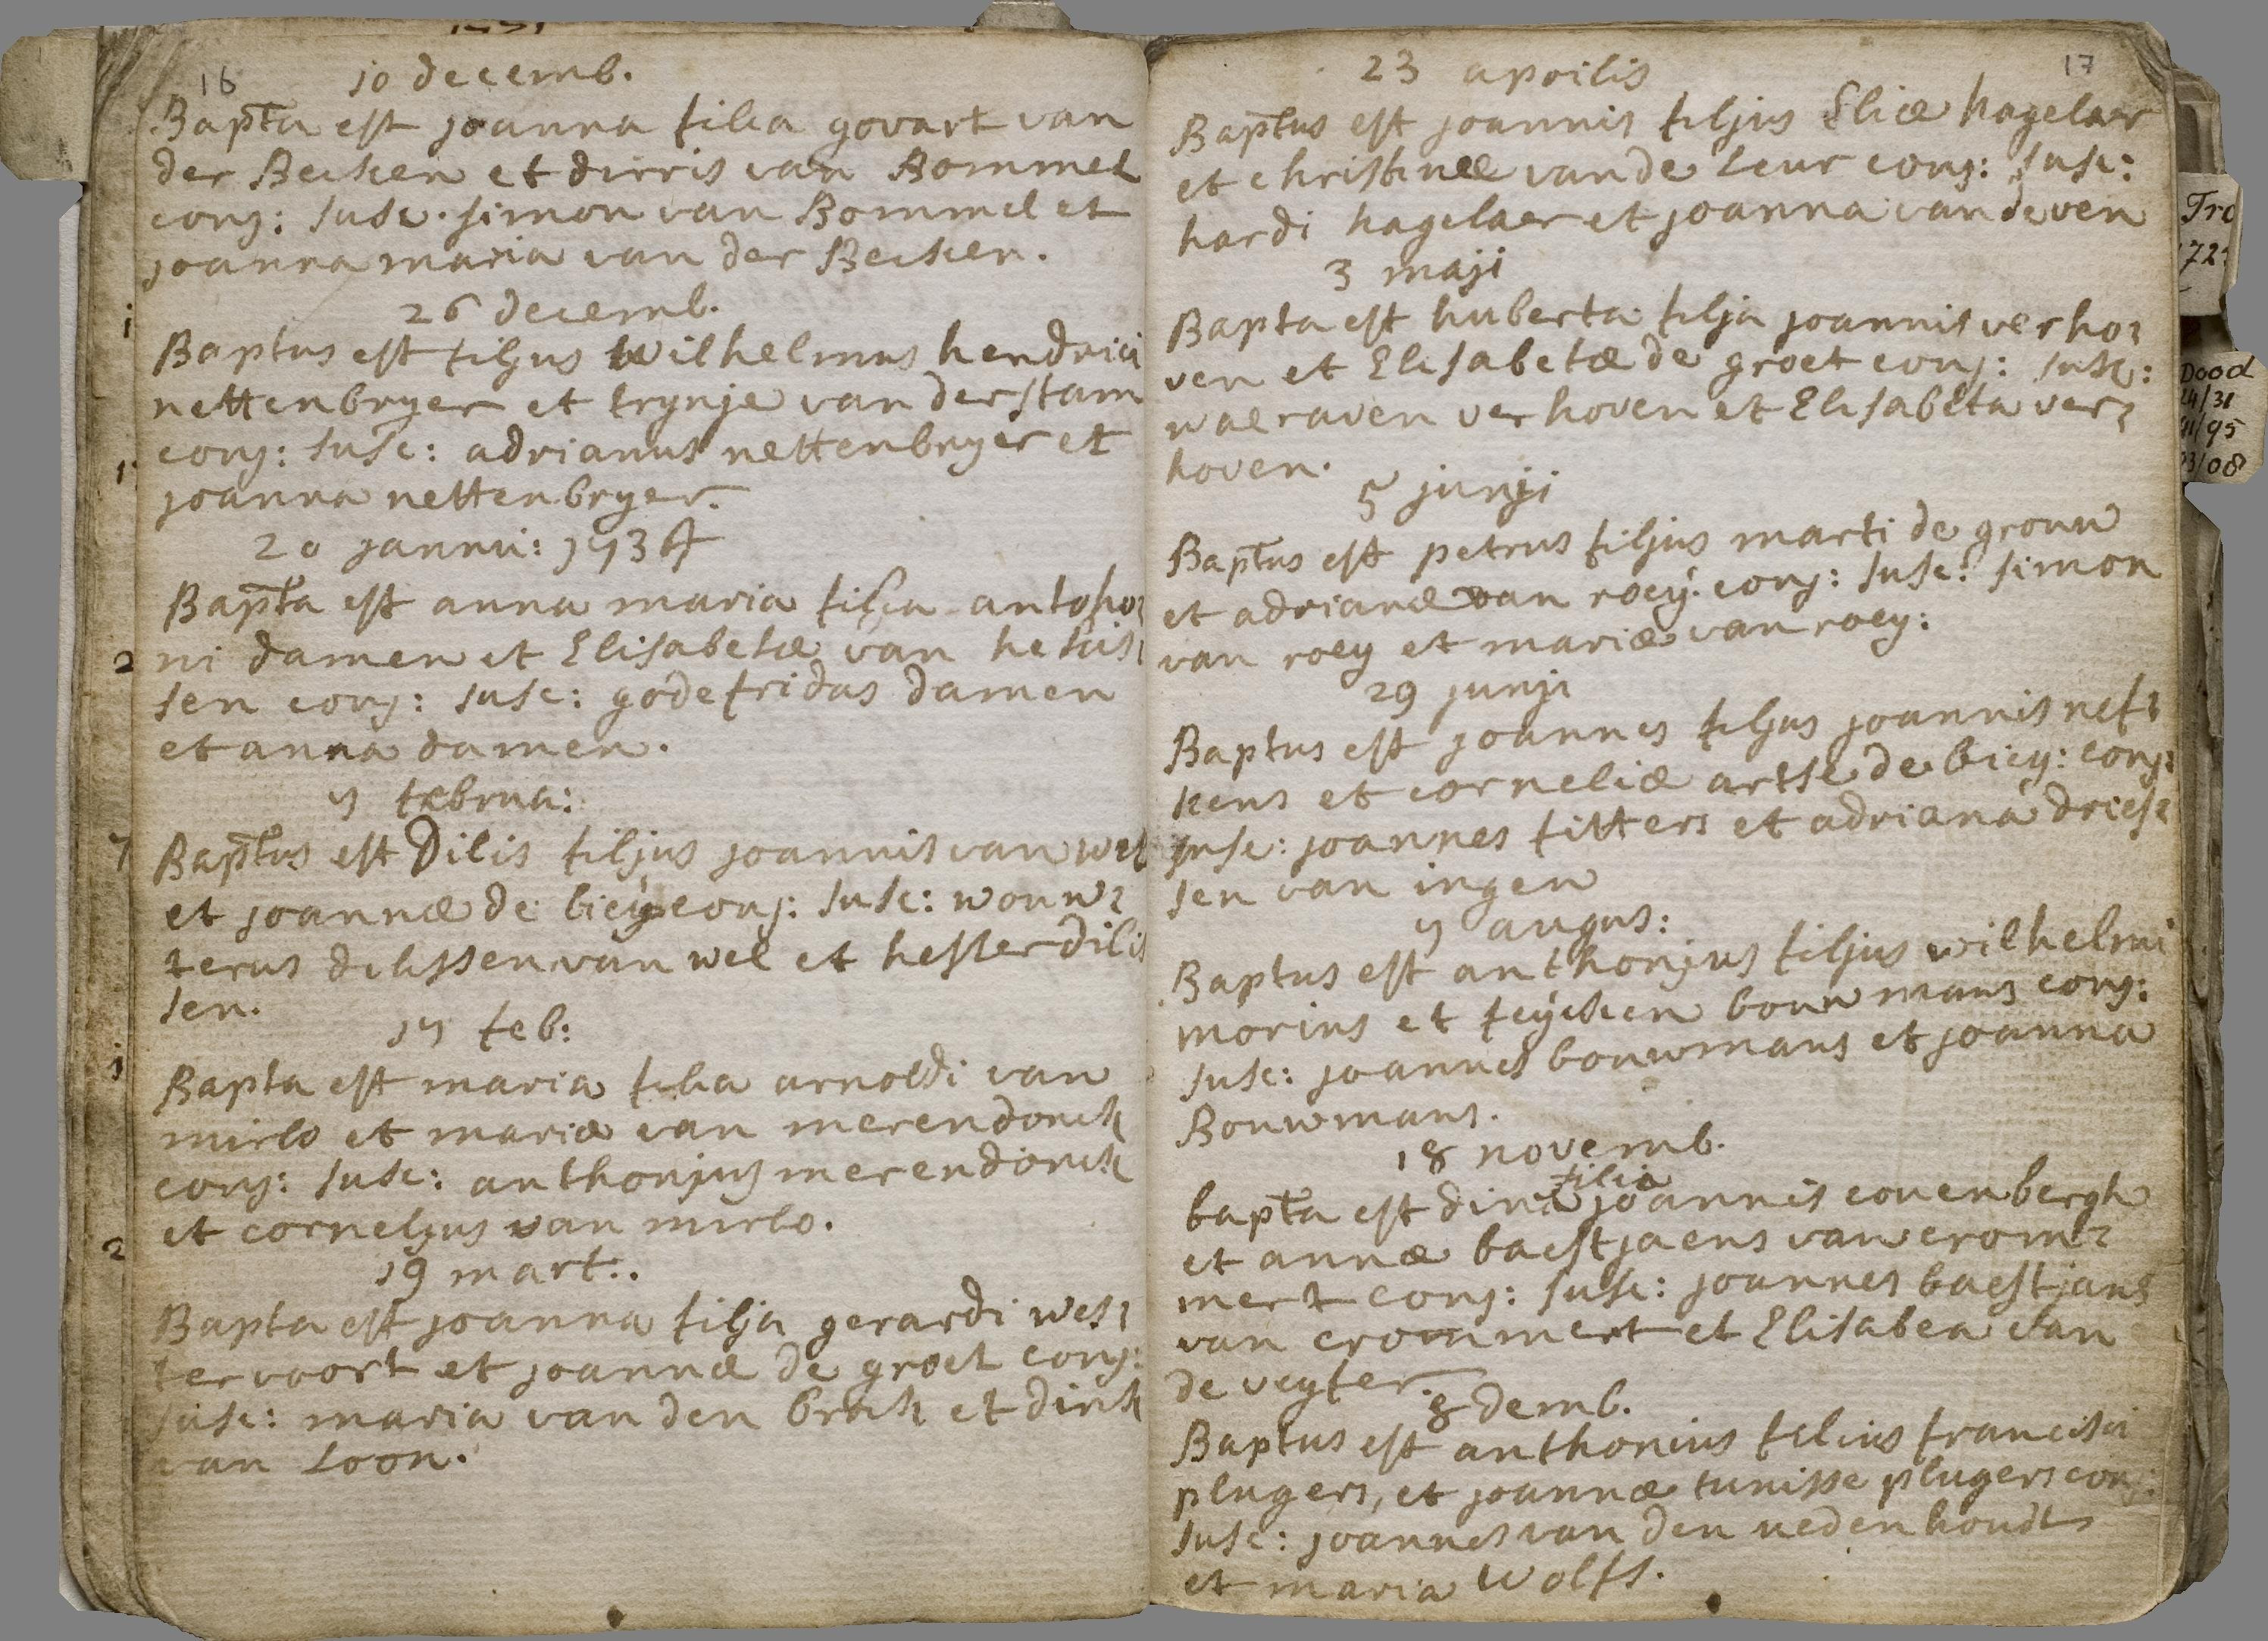 16
10 decemb.
Bapta est joanna filia govart van
der Becken et dirris van Bommel
conj: susc. simon van Bommel et
joanna maria van der Becken.
26 decemb.
Baptus est filjus wilhelmus hendrici
nettenbryer et trynje van der stam
conj: susc: adrianus nettenbryer et
joanna nettenbryer.
20 jannu: 1736
Bapta est anna maria filia antoho
ni damen et Elisabetæ van hetuis
sen conj: susc: godefridus damen
et anna damen.
7 februa:
Baptus est Dilis filjus joannis van wel
et joannæ de biey conj: susc: wouw
terus dilissen van wel et hester dilis
sen.
17 feb:
Bapta est maria filia arnoldi van
mirlo et mariæ van merendonck
conj: susc: anthonjus merendonck
et corneljus van mirlo.
19 mart..
Bapta est joanna filja gerardi wes
tervoort et joannæ de groet conj:
susc: maria van den brock et dirck
van Loon.
17
23 aprilis
Baptus est joannis filjus Eliæ hagelaer
et christinæ van de Leur conj: susc:
hardi hagelaer et joanna van de ven
3 maji
Bapta est huberta filja joannis verho
ven et Elisabetæ de groet conj: susc:
walraven verhoven et Elisabeta ver
hoven.
5 junji
Baptus est petrus filjus marti de grouw
et adrianæ van roey conj: susc: simon
van roey et mariæ van roey:
29 junji
Baptus est joannes filjus joannis nef
kens et corneliæ artse de biey: conj:
susc: joannes fitters et adriana dries
sen van ingen
7 augus:
Baptus est anthonjus filjus wilhelmi
morins et feycken bouwmans conj:
susc: joannes bouwmans et joanna
Bouwmans.
18 novemb.
filia
bapta est dina joannis couenbergh
et annæ baestjaens van crom
mert conj: susc: joannes baestjans
van crommert et Elisabea van
de veyfer.
8 demb.
Baptus est anthonius filius francisci
plugers, et joannæ tunisse plugers conj:
susc: joannes van den nedenhoudt
et maria Wolfs.
Dood